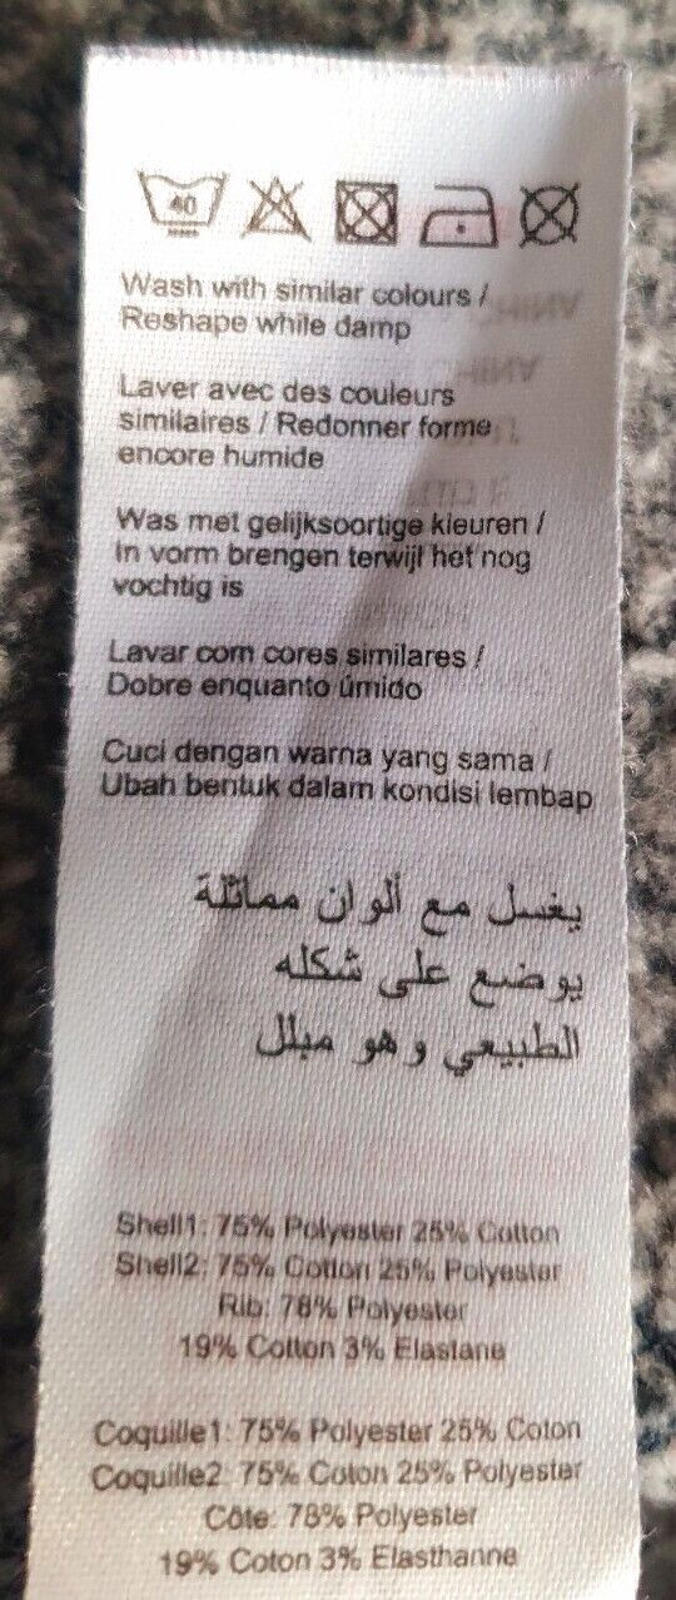 40
Wash with similar colours /
Reshape while damp
Laver avec des couleurs
similaires / Redonner forme
encore humide
Was met gelijksoortige kleuren /
In vorm brengen terwijl het nog
vochtig is
Lavar com cores similares /
Dobre enquanto úmido
Cuci dengan warna yang sama /
Ubah bentuk dalam kondisi lembap
يغسل مع ألوان مماثلة
يوضع على شكله
الطبيعي وهو مبلل
Shell1: 75% Polyester 25% Cotton
Shell2: 75% Cotton 25% Polyester
Rib: 78% Polyester
19% Cotton 3% Elastane
Coquille1: 75% Polyester 25% Coton
Coquille2: 75% Coton 25% Polyester
Côte: 78% Polyester
19% Coton 3% Elasthanne